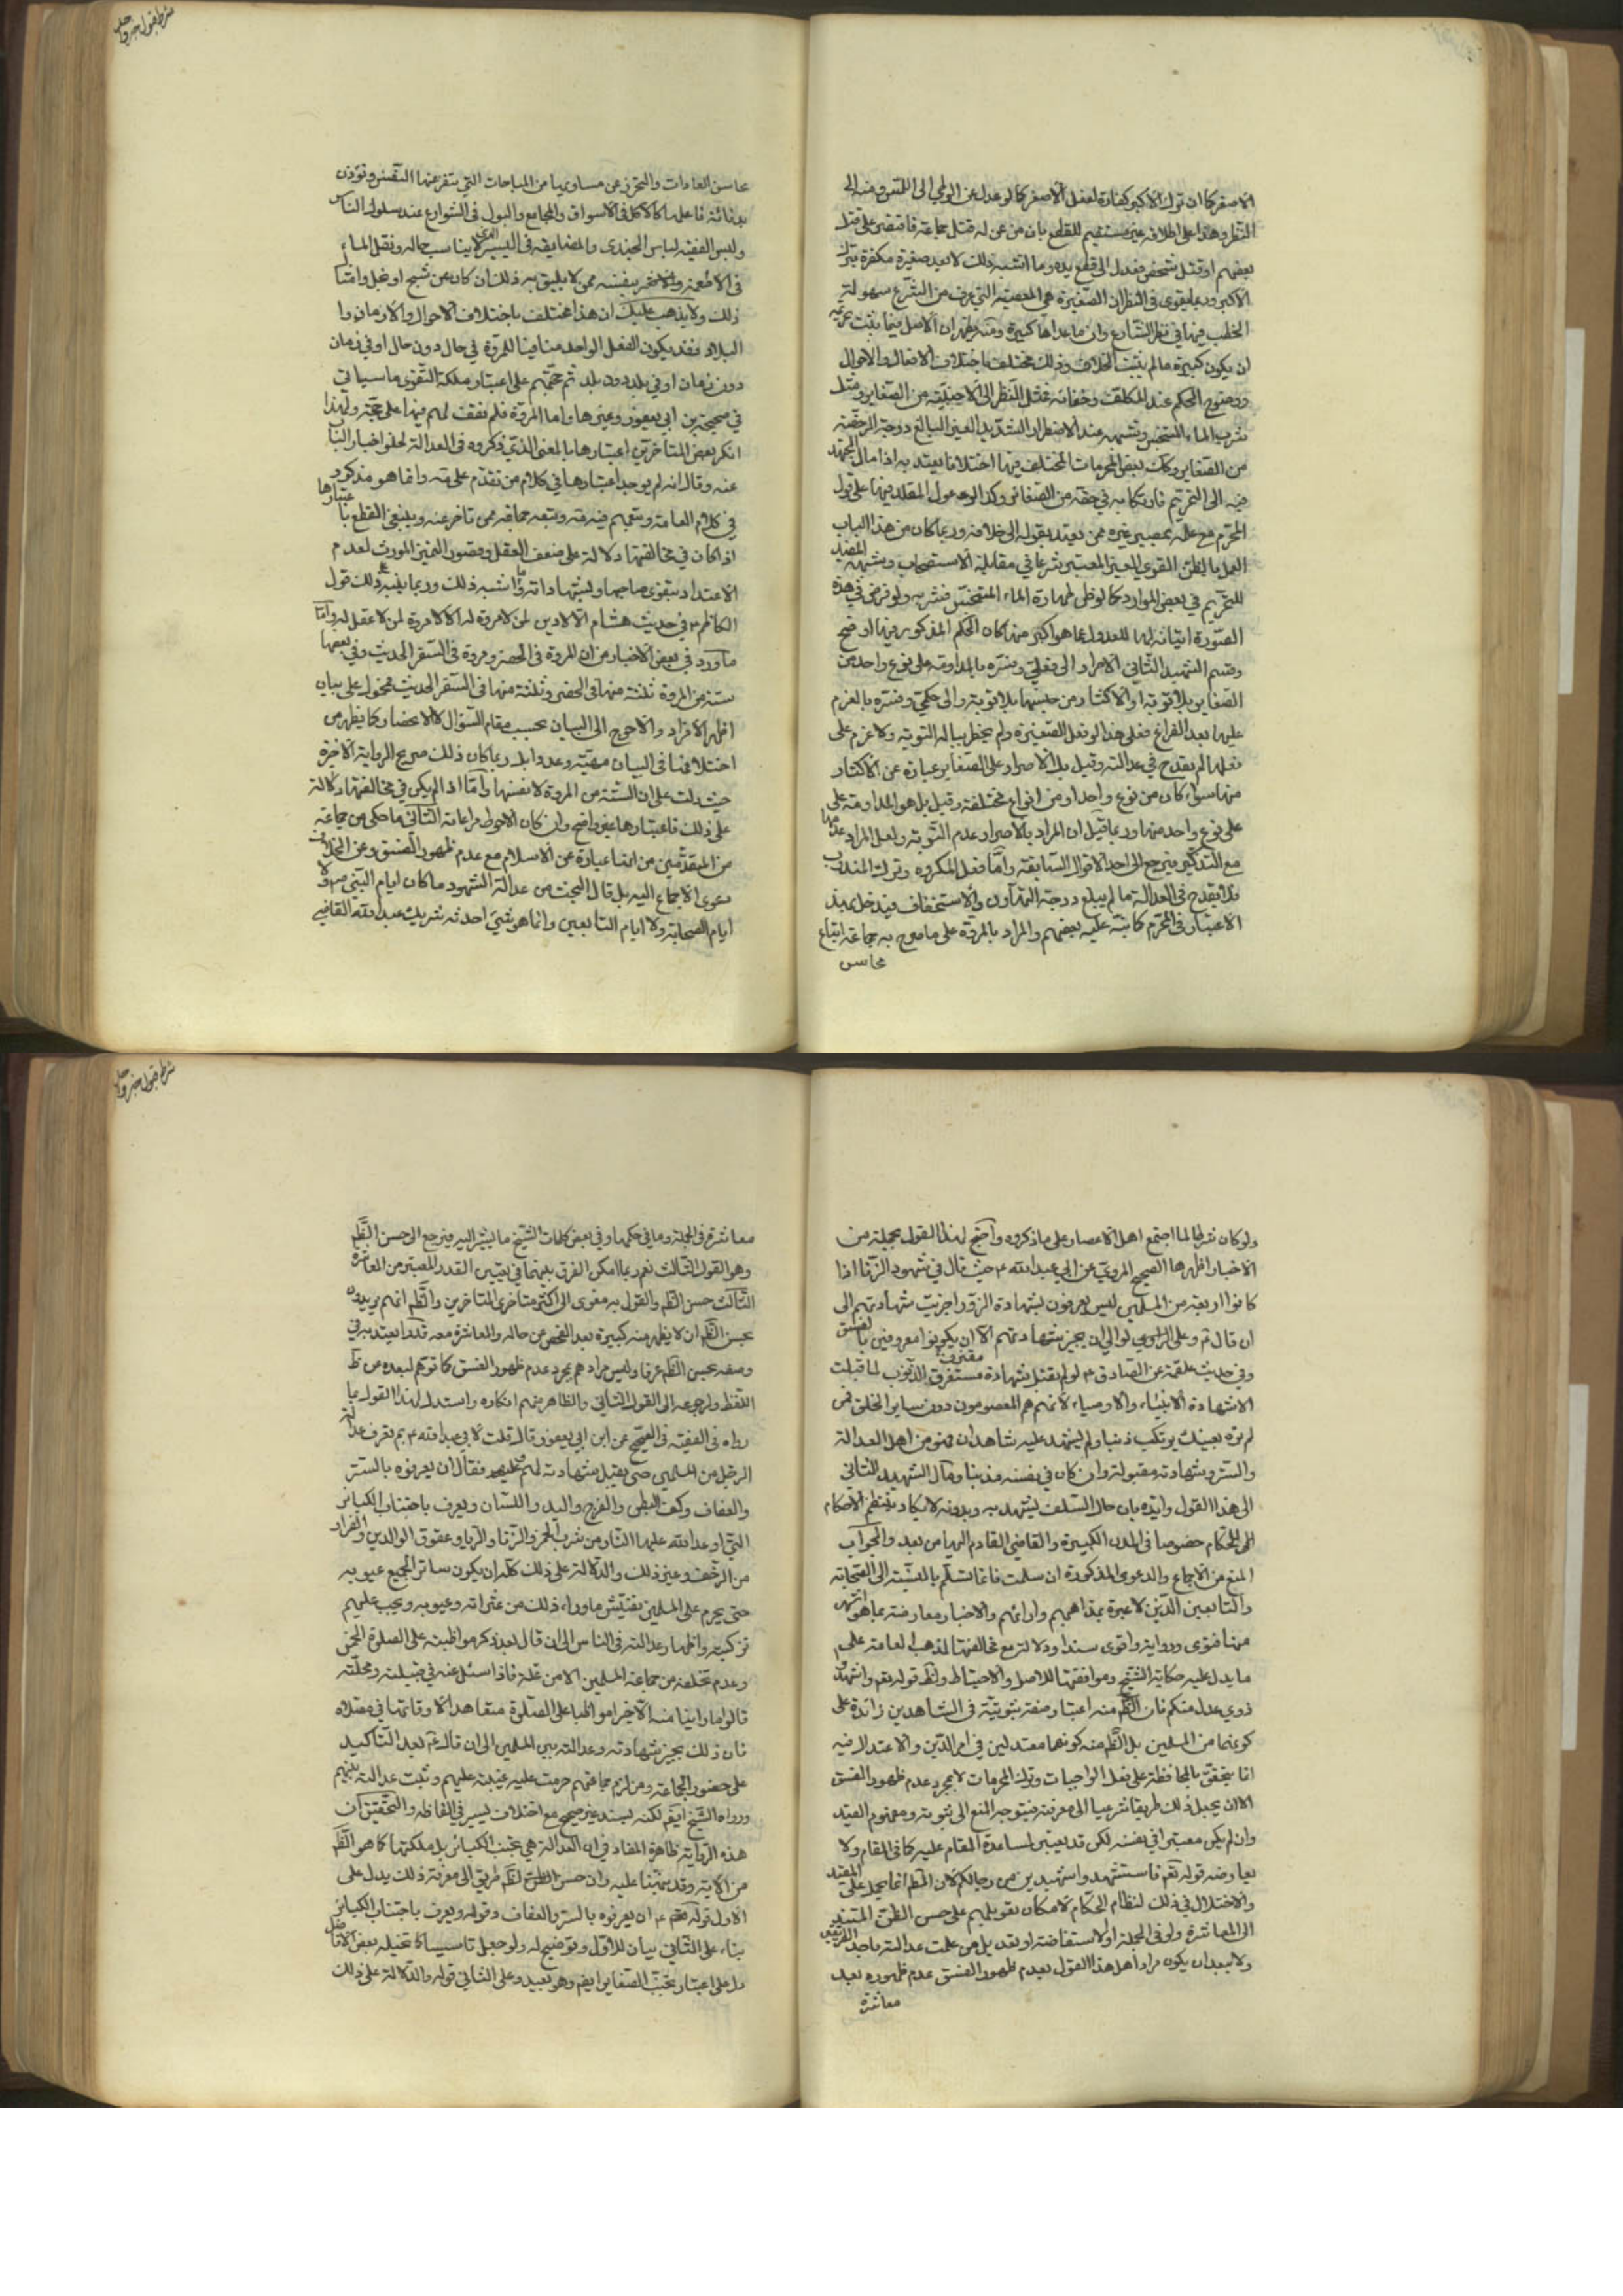 الاصغر كما ان ترك الاكبر كفارة لفعل الاصغر كما لو عدل عن الوطي الى اللمس ومنه الى
النظر وهذا على اطلاقه غير مستقيم للقطع بان من عن له قتل جماعة فاقتصر على قتل
بعضهم او قتل شخص فعدل الى قطع يده وما اشبه ذلك لا يعد صغيرة مكفرة بترك
الاكبر وربما يقوى في النظر ان الصغيرة هي المعصية التي عرف من الشرع سهولة
الخطب فيها في نظر الشارع وان ما عداها كبيرة ومنه يظهر ان الاصل فيما يثبت تحريمه
ان يكون كبيرة ما لم يثبت الخلاف وذلك مختلف باختلاف الافعال والاحوال
ووضوح الحكم عند المكلف وخفائه فمثل النظر الى الاجنبية من الصغاير ومثل
شرب الماء المتنجس وشبهه عند الاضطرار الشديد الغير البالغ درجة الرخصة
من الصغاير وكذا بعض المحرمات المختلف فيها اختلافا يعتد به اذا مال المجتهد
فيه الى التحريم فارتكابه في حقه من الصغائر وكذا لو عول المقلد فيها على قول
المحرم مع علمه بمصير غيره ممن يعتد بقوله الى خلافه وربما كان من هذا الباب
العمل بالظن القوي الغير المعتبر شرعا في مقابلة الاستصحاب وشبهه المفيد
للتحريم في بعض الموارد كما لو ظن طهارة الماء المتنجس فشربه ولو فرض في هذه
الصورة اتيانه لها للعدول عما هو اكبر منها كان الحكم المذكور فيها اوضح
وقسم الشهيد الثاني الاصرار الى فعلي وفسره بالمداومة على نوع واحد من
الصغاير بلا توبة او الاكثار من جنسها بلا توبة والى حكمي وفسره بالعزم
عليها بعد الفراغ فعلى هذا لو فعل الصغيرة ولم يخطر بباله التوبة ولا عزم على
فعلها لم يقدح في عدالته وقيل بل الاصرار على الصغاير عبارة عن الاكثار
منها سواء كان من نوع واحد او من انواع مختلفة وقيل بل هو المداومة على
على نوع واحد منها وربما قيل ان المراد بالاصرار عدم التوبة ولعل المراد عدمها
مع التذكر فيرجع الى احد الاقوال السابقة واما فعل المكروه وترك المندوب
فلا يقدح في العدالة ما لم يبلغ درجة التهاون والاستخفاف فيدخل بهذا
الاعتبار في المحرم كما نبه عليه بعضهم والمراد بالمروة على ما صرح به جماعة اتباع
محاسن
شرط قبول خبر واحد
محاسن العادات والتحرز عن مساويها من المباحات التي يتنفر عنها النفس وتؤذن
بدنائة فاعلها كالاكل في الاسواق والمجامع والبول في الشوارع عند سلوك الناس
ولبس الفقيه لباس الجندي والمضايقة في اليسير الذي لا يناسب حاله ونقل الماء
في الاطعمة ونحوها بنفسه ممن لا يليق به ذلك ان كان عن شح او بخل وامثال
ذلك ولا يذهب عليك ان هذا مختلف باختلاف الاحوال والازمان وا
البلاد فقد يكون الفعل الواحد منافيا للمروة في حال دون حال او في زمان
دون زمان او في بلد دون بلد ثم حجتهم على اعتبار ملكة التقوى ما سياتي
في صحيحة بن ابي يعفور وغيرها واما المروة فلم نقف لهم فيها على حجة ولهذا
انكر بعض المتاخرين اعتبارها بالمعنى الذي ذكروه في العدالة لخلو اخبار الباب
عنه وقال انه لم يوجد اعتبارها في كلام من تقدم على مة وانما هو مذكور
في كلام العامة وتبعهم فيه مة وتبعه جماعة ممن تاخر عنه وينبغي القطع باعتبارها
اذا كان في مخالفتها دلالة على ضعف العقل وقصور التميز المورث لعدم
الاعتداد بتقوى صاحبها وبشهاداته وما اشبه ذلك وربما ينبه على ذلك قول
الكاظم ع في حديث هشام الا لا دين لمن لا مروة له الا لا مروة لمن لا عقل له واما
ما ورد في بعض الاخبار من ان للمروة في الحضر ومروة في السفر الحديث وفي بعضها
ستة من المروة ثلثة منها في الحضر وثلثة منها في السفر الحديث فمحمول على بيان
اظهر الافراد والاحوج الى البيان بحسب مقام السؤال لا الانحصار كما يظهر من
اختلافها في البيان معنى وعددا بل ربما كان ذلك صريح الرواية الاخيرة
حيث دلت على ان الستة من المروة لا نفسها واما اذا لم يكن في مخالفتها دلالة
على ذلك فاعتبارها غير واضح وان كان الاحوط مراعاته الثاني ما حكي من جماعة
من المتقدمين من انها عبارة عن الاسلام مع عدم ظهور الفسق وعن الخلاف
دعوى الاجماع اليه بل قال البحث من عدالة الشهود ما كان ايام النبي ص ولا
ايام الصحابة ولا ايام التابعين وانما هو شيء احدثه شريك بن عبد الله القاضي
ولو كان شرطا لما اجتمع اهل الاعصار على ما ذكروه واحتج لهذا القول بجملة من
الاخبار اظهرها الصحيح المروي عن ابي عبد الله ع حيث قال في شهود الزنا اذا
كانوا اربعة من المسلمين ليس يعرفون بشهادة الزور اجزيت شهادتهم الى
ان قال ثم وعلى الوالي ان يجيز شهادتهم الا ان يكونوا معروفين بالفسق
وفي حديث علقمة عن الصادق ع لو لم يقبل شهادة مقترف الذنوب لما قبلت
الا شهادة الانبياء والاوصياء لانهم هم المعصومون دون ساير الخلق فمن
لم تره بعينك يرتكب ذنبا ولم يشهد عليه شاهدان فهو من اهل العدالة
والستر وشهادته مقبولة وان كان في نفسه مذنبا ومال الشهيد الثاني
الى هذا القول وايده بان حال السلف يشهد به وبدونه لا يكاد ينتظم الاحكام
للحكام خصوصا في المدن الكبيرة والقاضي القادم اليها من بعد والجواب
المنع من الاجماع والدعوى المذكورة ان سلمت فانما تسلم بالنسبة الى الصحابة
والتابعين الذين لا عبرة بمذاهبهم وارائهم والاخبار معارضة بما هو اشهر
منها فتوى ورواية واقوى سندا ودلالة مع مخالفتها لمذهب العامة على
ما يدل عليه حكاية الشيخ وموافقتها للاصل والاحتياط ولظ قوله تعم واشهدوا
ذوي عدل منكم فان الظ منه اعتبار صفة ثبوتية في الشاهدين زائدة على
كونهما من المسلمين بل الظ منه كونهما معتدلين في امر الدين والاعتدال فيه
انما يتحقق بالمحافظة على فعل الواجبات وترك المحرمات لا مجرد عدم ظهور الفسق
الا ان يجعل ذلك طريقا شرعيا الى معرفته فيتوجه المنع الى ثبوته ومفهوم القيد
وان لم يكن معتبرا في نفسه لكن قد يعتبر لمساعدة المقام عليه كما في المقام ولا
يعارضه قوله تعم فاستشهدوا شهيدين من رجالكم لان المطلق انما يحمل على المقيد
والاختلال في ذلك لنظام الحكام لامكان تعويلهم على حسن الظن المستند
الى المعاشرة ولو في الجملة او الاستفاضة او تعديل من علمت عدالته باحد الطريقين
ولا يبعد ان يكون مراد اهل هذا القول بعدم ظهور الفسق عدم ظهوره بعد
معاشرة
شرط قبول خبر واحد
معاشرة في الجملة وما في حكمها وفي بعض كلمات الشيخ ما يشير اليه فيرجع الى حسن الظم
وهو القول الثالث نعم ربما امكن الفرق بينهما في تعيين القدر المعتبر من المعاشرة
الثالث حسن الظم والقول به معزى الى اكثر متاخري المتاخرين والظم انهم يريدون
بحسن الظم ان لا يظهر منه كبيرة بعد الفحص عن حاله والمعاشرة معه قدرا يعتد به في
وصفه بحسن الظم عرفا وليس مرادهم مجرد عدم ظهور الفسق كما توهم لبعده من ظ
اللفظ ولرجوعه الى القول الثاني والظاهر منهم انكاره واستدل لهذا القول بما
رواه في الفقيه في الصحيح عن ابن ابي يعفور قال قلت لابي عبد الله ع بم تعرف عدالة
الرجل من المسلمين حتى يقبل شهادته لهم وعليهم فقال ان يعرفوه بالستر
والعفاف وكف البطن والفرج واليد واللسان ويعرف باجتناب الكبائر
التي اوعد الله عليها النار من شرب الخمر والزنا والربا وعقوق الوالدين والفرار
من الزحف وغير ذلك والدلالة على ذلك كله ان يكون ساتر الجميع عيوبه
حتى يحرم على المسلمين تفتيش ما وراء ذلك من عثراته وعيوبه ويجب عليهم
تزكيته واظهار عدالته في الناس الى ان قال بعد ذكر مواظبته على الصلوة الخمس
وعدم تخلفه من جماعة المسلمين الا من علة فاذا سئل عنه في قبيلته ومحلته
قالوا ما راينا منه الا خيرا مواظبا على الصلوة متعاهدا لاوقاتها في مصلاه
فان ذلك يجيز شهادته وعدالته بين المسلمين الى ان قال ثم بعد التاكيد
على حضور الجماعة ومن لزم جماعتهم حرمت عليهم غيبته عليهم وثبت عدالته بينهم
ورواه الشيخ ايضم لكنه بسند غير صحيح مع اختلاف يسير في الفاظه والتحقيق ان
هذه الرواية ظاهرة المفاد في ان العدالة هي تجنب الكبائر بل ملكتها كما هو الظم
من الاية وقد نبهنا عليه وان حسن الظم طريق الى معرفة ذلك يدل على
الاول قوله ع ان يعرفوه بالستر والعفاف وقوله ويعرف باجتناب الكبائر
بناء على الثاني بيان للاول وتوضيح له ولو جعل تاسيسا كما تخيله بعض الافاضل
دل على اعتبار تجنب الصغاير ايضم وهو بعيد وعلى الثاني قوله والدلالة على ذلك